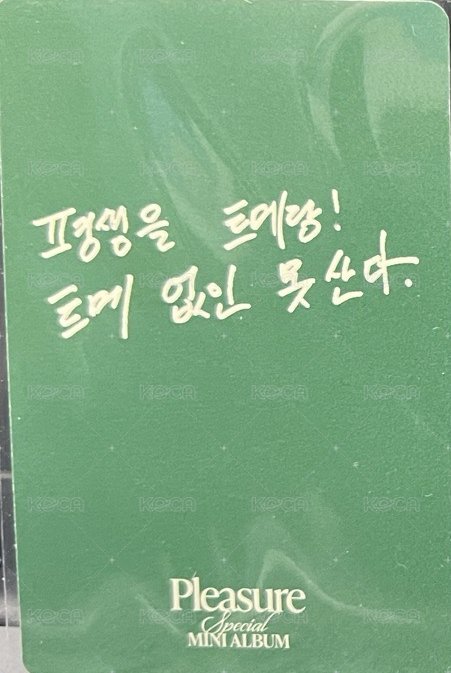 평생을 트메랑!
트메 없인 못 산다.
Pleasure
Special
MINI ALBUM